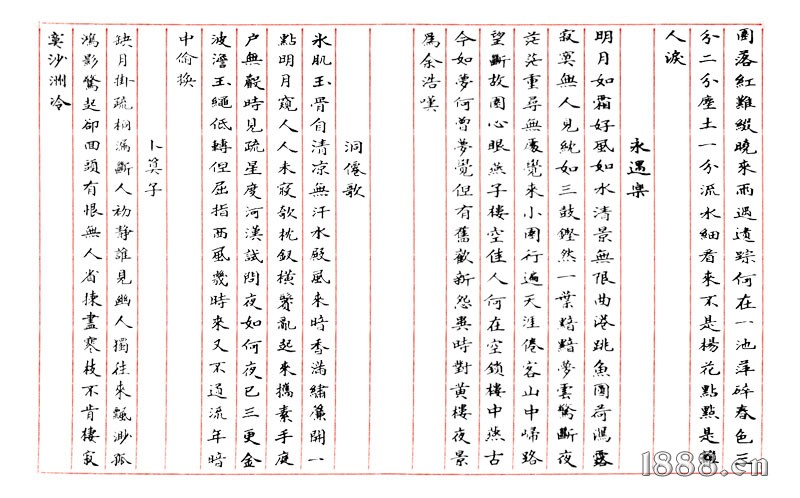 園落紅難綴曉來雨過遺踪何在一池萍碎春色三
分二分塵土一分流水細看來不是楊花點點是離
人淚
永遇樂
明月如霜好風如水清景無限曲港跳魚圓荷瀉露
寂寞無人見紞如三鼓鏗然一葉黯黯夢雲驚斷夜
茫茫重尋無處覺來小園行遍天涯倦客山中歸路
望斷故園心眼燕子樓空佳人何在空鎖樓中燕古
今如夢何曾夢覺但有舊歡新怨異時對黃樓夜景
爲余浩嘆
洞僊歌
氷肌玉骨自清凉無汗水殿風來暗香滿繡簾開一
點明月窺人人未寢欹枕釵橫鬢亂起來攜素手庭
户無聲時見疏星度河漢試問夜如何夜已三更金
波澹玉繩低轉但屈指西風幾時來又不道流年暗
中偷換
卜算子
缺月掛疏桐漏斷人初靜誰見幽人獨往來飄渺孤
鴻影驚起卻回頭有恨無人省揀盡寒枝不肯棲寂
寞沙洲冷
1888.cn